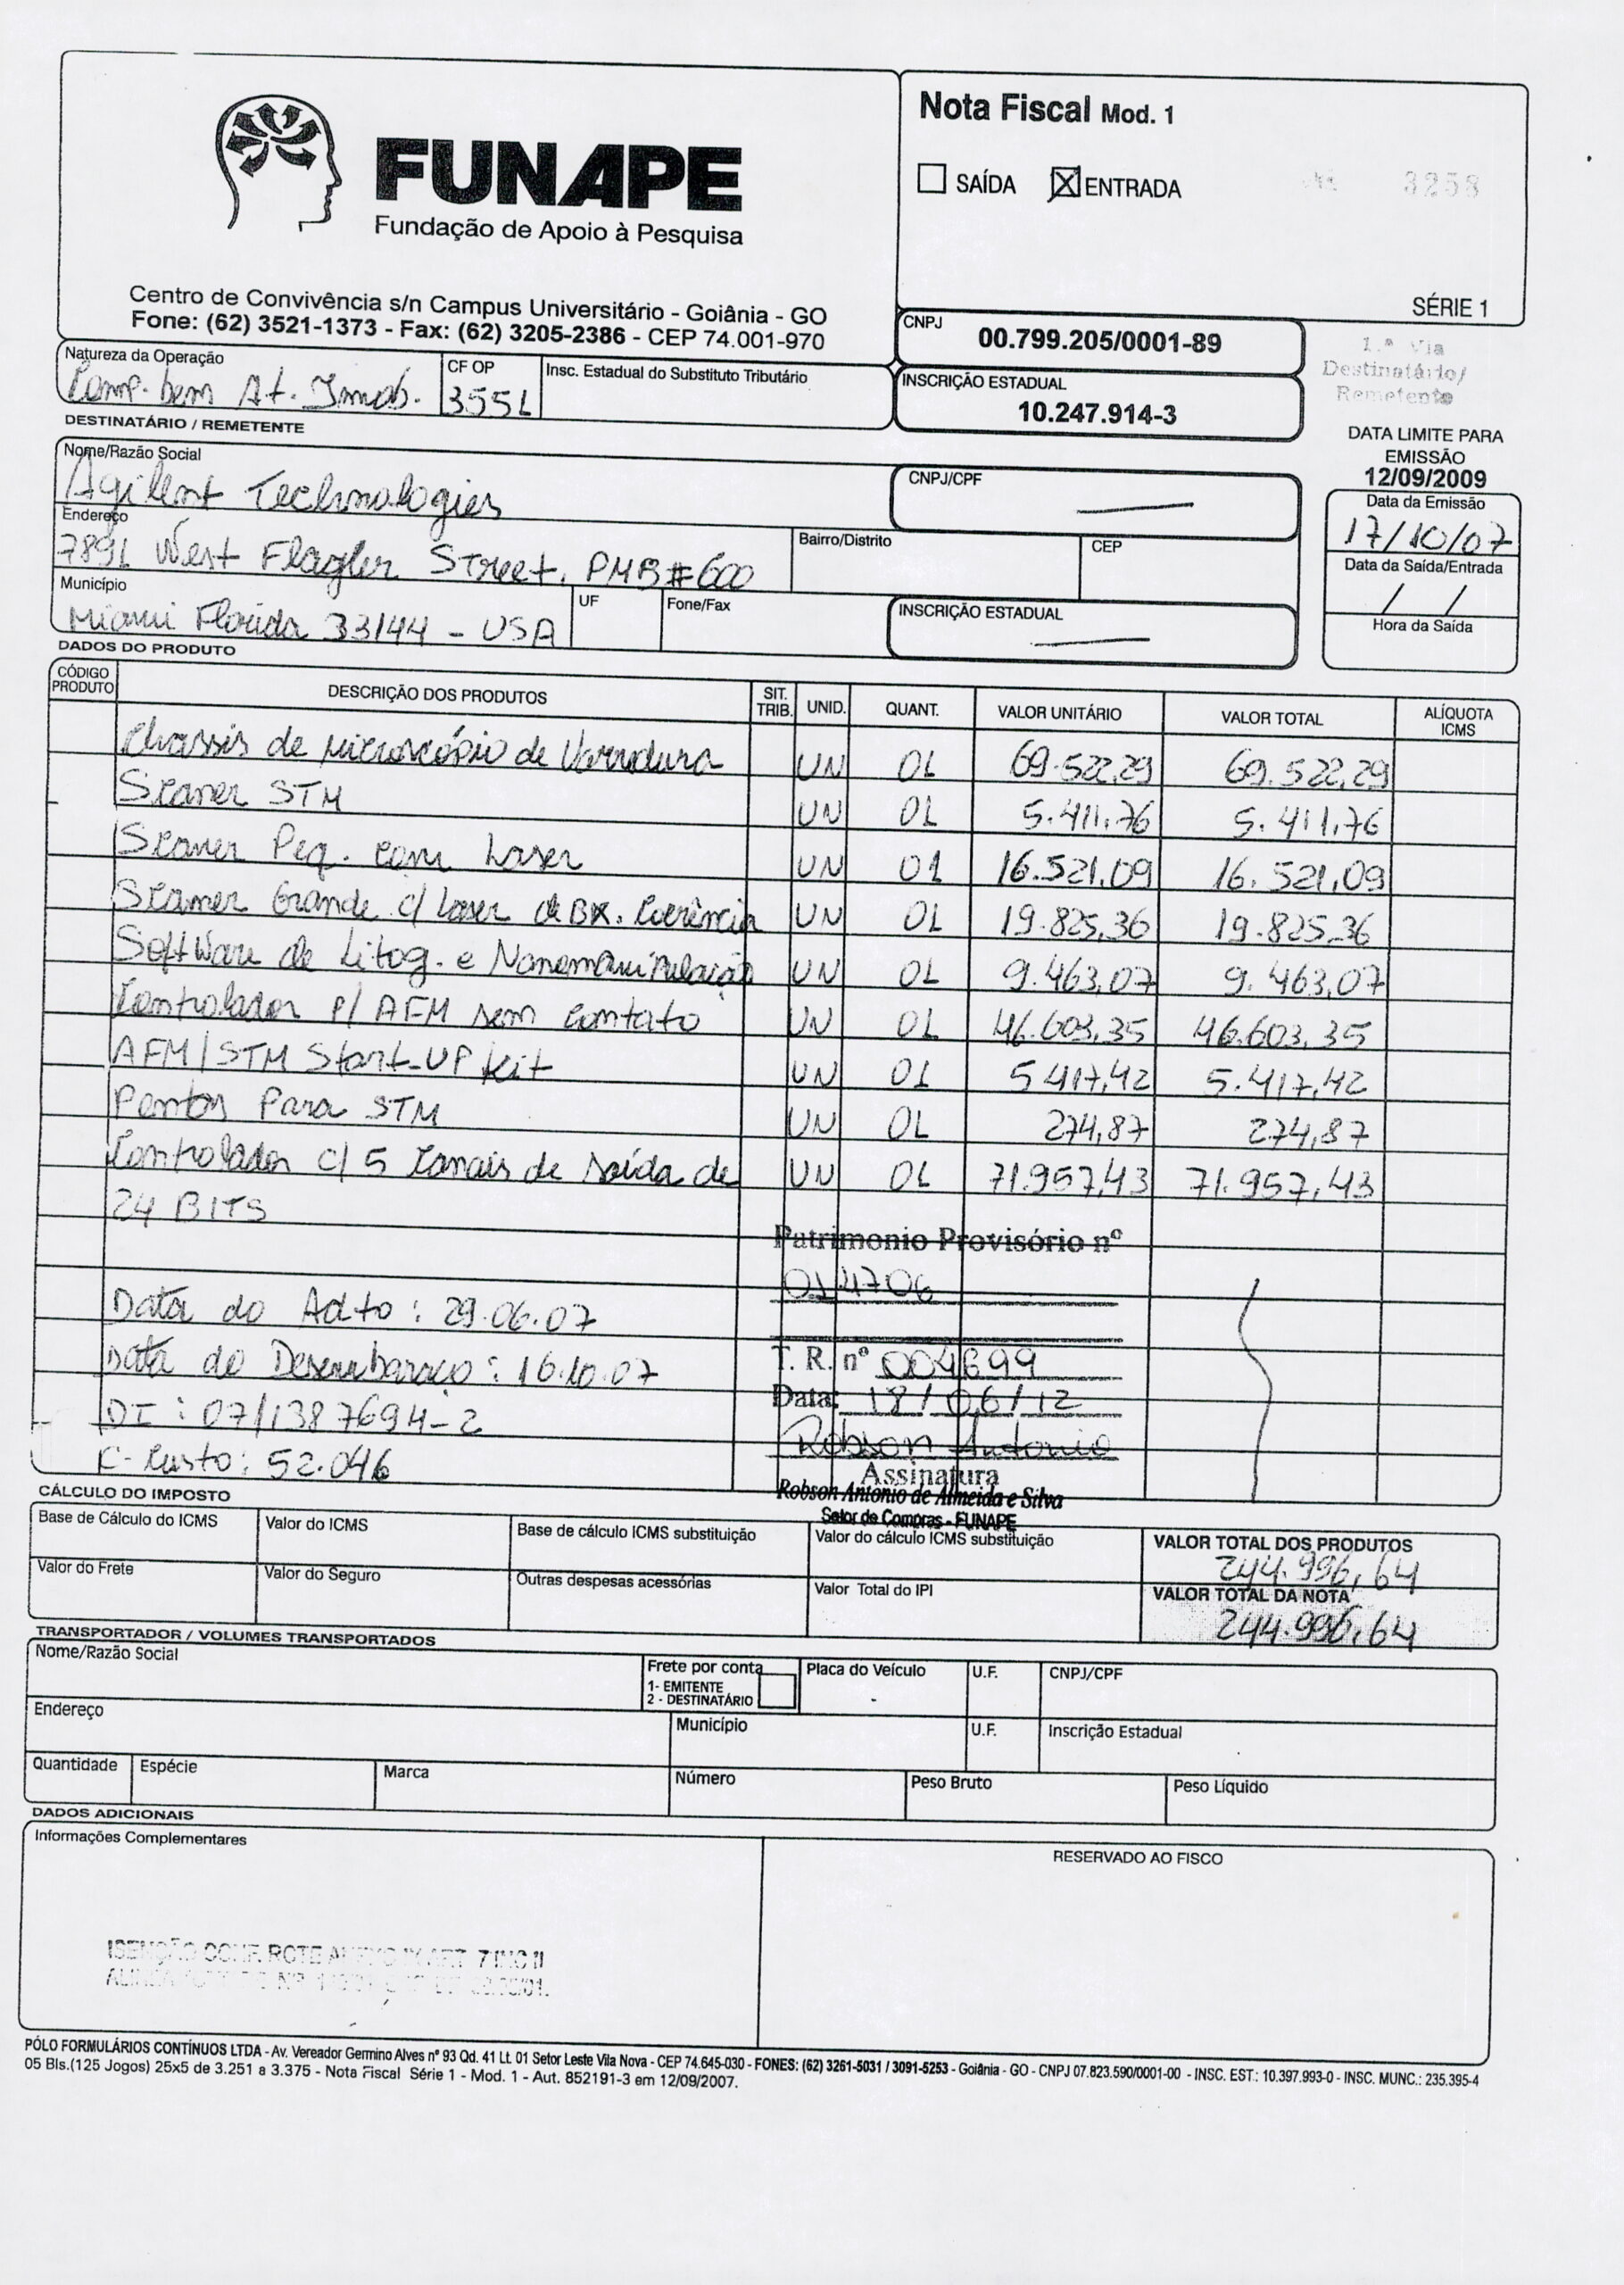 Nota Fiscal Mod. 1
SAÍDA ☒ ENTRADA
3258
FUNAPE
Fundação de Apoio à Pesquisa
SÉRIE 1
Centro de Convivência s/n Campus Universitário - Goiânia - GO
Fone: (62) 3521-1373 - Fax: (62) 3205-2386 - CEP 74.001-970
CNPJ
00.799.205/0001-89
1.ª Via
Destinatário/
Remetente
Natureza da Operação
Comp. bem At. Imob.
CF OP
3551
Insc. Estadual do Substituto Tributário
INSCRIÇÃO ESTADUAL
10.247.914-3
DESTINATÁRIO / REMETENTE
DATA LIMITE PARA
EMISSÃO
12/09/2009
Nome/Razão Social
Agilent Technologies
CNPJ/CPF
Data da Emissão
17/10/07
Endereço
7891 West Flagler Street, PMB#600
Bairro/Distrito
CEP
Data da Saída/Entrada
/ /
Município
Miami Florida 33144 - USA
UF
Fone/Fax
INSCRIÇÃO ESTADUAL
Hora da Saída
DADOS DO PRODUTO
CÓDIGO PRODUTO DESCRIÇÃO DOS PRODUTOS SIT. TRIB. UNID. QUANT. VALOR UNITÁRIO VALOR TOTAL ALÍQUOTA ICMS
Chassis de Microscópio de Varredura UN 01 69.522,29 69.522,29
Scaner STM UN 01 5.411,76 5.411,76
Scaner Peq. com Laser UN 01 16.521,09 16.521,09
Scanner Grande c/ Laser de BX. Coerência UN 01 19.825,36 19.825,36
Software de Litog. e Nanomanipulação UN 01 9.463,07 9.463,07
Controlador p/ AFM sem contato UN 01 46.603,35 46.603,35
AFM/STM Start-UP Kit UN 01 5.417,42 5.417,42
Pontos Para STM UN 01 274,87 274,87
Controlador c/ 5 Canais de saída de UN 01 71.957,43 71.957,43
24 BITS
Patrimonio Provisório nº
014706
Data do Adto: 29.06.07
Data do Desembaraço: 16.10.07
T. R. nº 004699
Data: 18/06/12
DI: 07/1387694-2
Robson Antonio
C-Custo: 52.046
Assinatura
Robson Antonio de Almeida e Silva
Setor de Compras - FUNAPE
CÁLCULO DO IMPOSTO
Base de Cálculo do ICMS
Valor do ICMS
Base de cálculo ICMS substituição
Valor do cálculo ICMS substituição
VALOR TOTAL DOS PRODUTOS
244.996,64
Valor do Frete
Valor do Seguro
Outras despesas acessórias
Valor Total do IPI
VALOR TOTAL DA NOTA
244.996,64
TRANSPORTADOR / VOLUMES TRANSPORTADOS
Nome/Razão Social
Frete por conta
1- EMITENTE
2 - DESTINATÁRIO
Placa do Veículo
U.F.
CNPJ/CPF
Endereço
Município
U.F.
Inscrição Estadual
Quantidade
Espécie
Marca
Número
Peso Bruto
Peso Líquido
DADOS ADICIONAIS
Informações Complementares
RESERVADO AO FISCO
ISENÇÃO CONF. RCTE ANEXO IX ART. 7 INC II
PÓLO FORMULÁRIOS CONTÍNUOS LTDA - Av. Vereador Germino Alves nº 93 Qd. 41 Lt. 01 Setor Leste Vila Nova - CEP 74.645-030 - FONES: (62) 3261-5031 / 3091-5253 - Goiânia - GO - CNPJ 07.823.590/0001-00 - INSC. EST.: 10.397.993-0 - INSC. MUNC.: 235.395-4
05 Bls.(125 Jogos) 25x5 de 3.251 a 3.375 - Nota Fiscal Série 1 - Mod. 1 - Aut. 852191-3 em 12/09/2007.